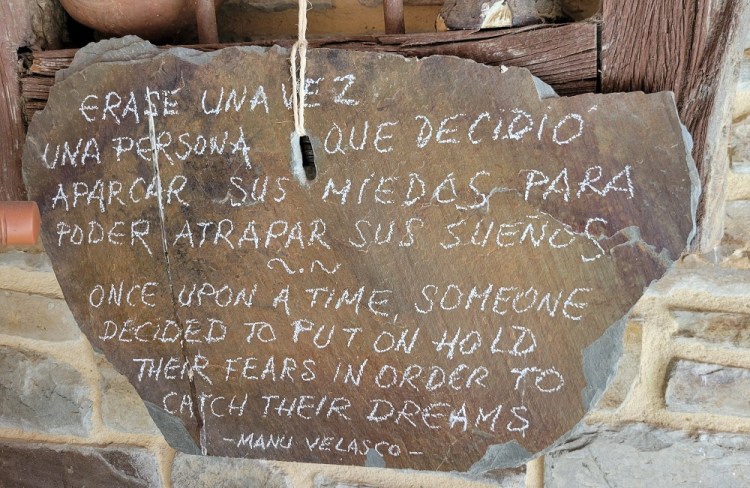 ERASE UNA VEZ
UNA PERSONA QUE DECIDIÓ
APARCAR SUS MIEDOS PARA
PODER ATRAPAR SUS SUEÑOS
~.~
ONCE UPON A TIME, SOMEONE
DECIDED TO PUT ON HOLD
THEIR FEARS IN ORDER TO
CATCH THEIR DREAMS
-MANU VELASCO-